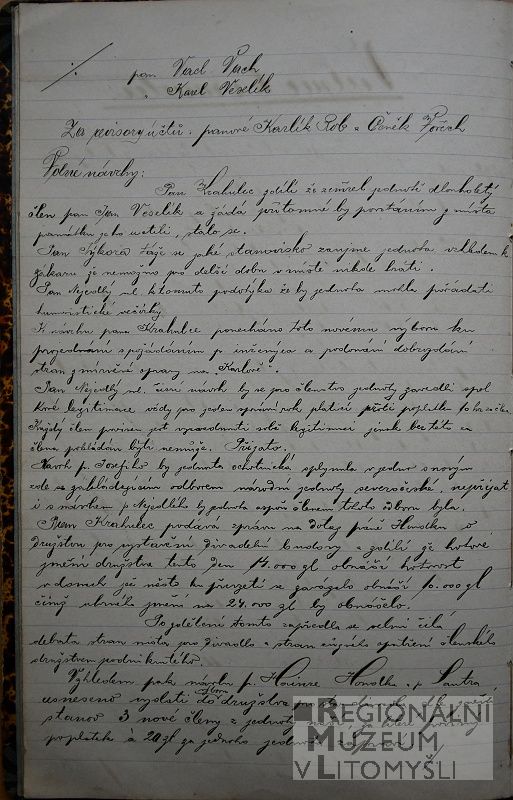 pan Vacl Vach
" Karel Veselík
Za revisory účtů: panové Karlík Rob a Čeněk Pořech
Volné návrhy:
Pan Krahulec zdělil že zemřel podnotě dlouholetý
člen pan Jan Veselík a žádá přítomné by povstáním z místa
památku jeho uctili, stalo se.
Pan Sýkora táže se jaké stanovisko zaujme jednota vzhledem k
zákazu je nemožno pro delší dobu v městě nikde hráti.
Pan Nejedlý ml. k tomuto podotýká že by jednota mohla pořádati
humoristické večírky
K návrhu pana Krahulce ponecháno toto novému výboru ku
projednání s pojádáním p. inženýra a podonání dobrozdání
stran zmírněné opravy na "Karlově".
Pan Nejedlý ml. činí návrh by se pro členstvo jednoty zavedli spol
kové legitimace vždy pro jeden správní rok platící proti poplatku
Každý člen povinen jest vyzvednouti sobě legitimaci jinak bez této za
člena pokládán býti nemůže. Přijato.
Návrh p. Josefiho by jednota ochotnická splynula v jedno s novým
zde se zakládajícím odborem národní jednoty severočeské, nepřijat
i s návrhem p. Nejedlého by jednota aspoň členem tohoto odboru byla.
Pan Krahulec podává zprávu na dotaz páně Hendla o
družstvu pro vystavění divadelní budovy a zdělil že hotové
jmění družstva tento den 14.000 zl obnáší hotovost
v domech jež město ku převzetí se zavázalo obnáší 10.000 zl
čímž úhrnné jmění na 24.000 zl by obnášelo.
Po zdělení tomto zapředla se velmi čilá
debata stran místa pro divadlo a stran
družstvem podniknutého.
Vzhledem pak návrhu p. Heinze Hendla p. Šantra
usneseno vyslati do družstva
stanov 3 nové členy z jednoty
poplatek à 20 zl za jednoho
REGIONÁLNÍ
MUZEUM
V LITOMYŠLI